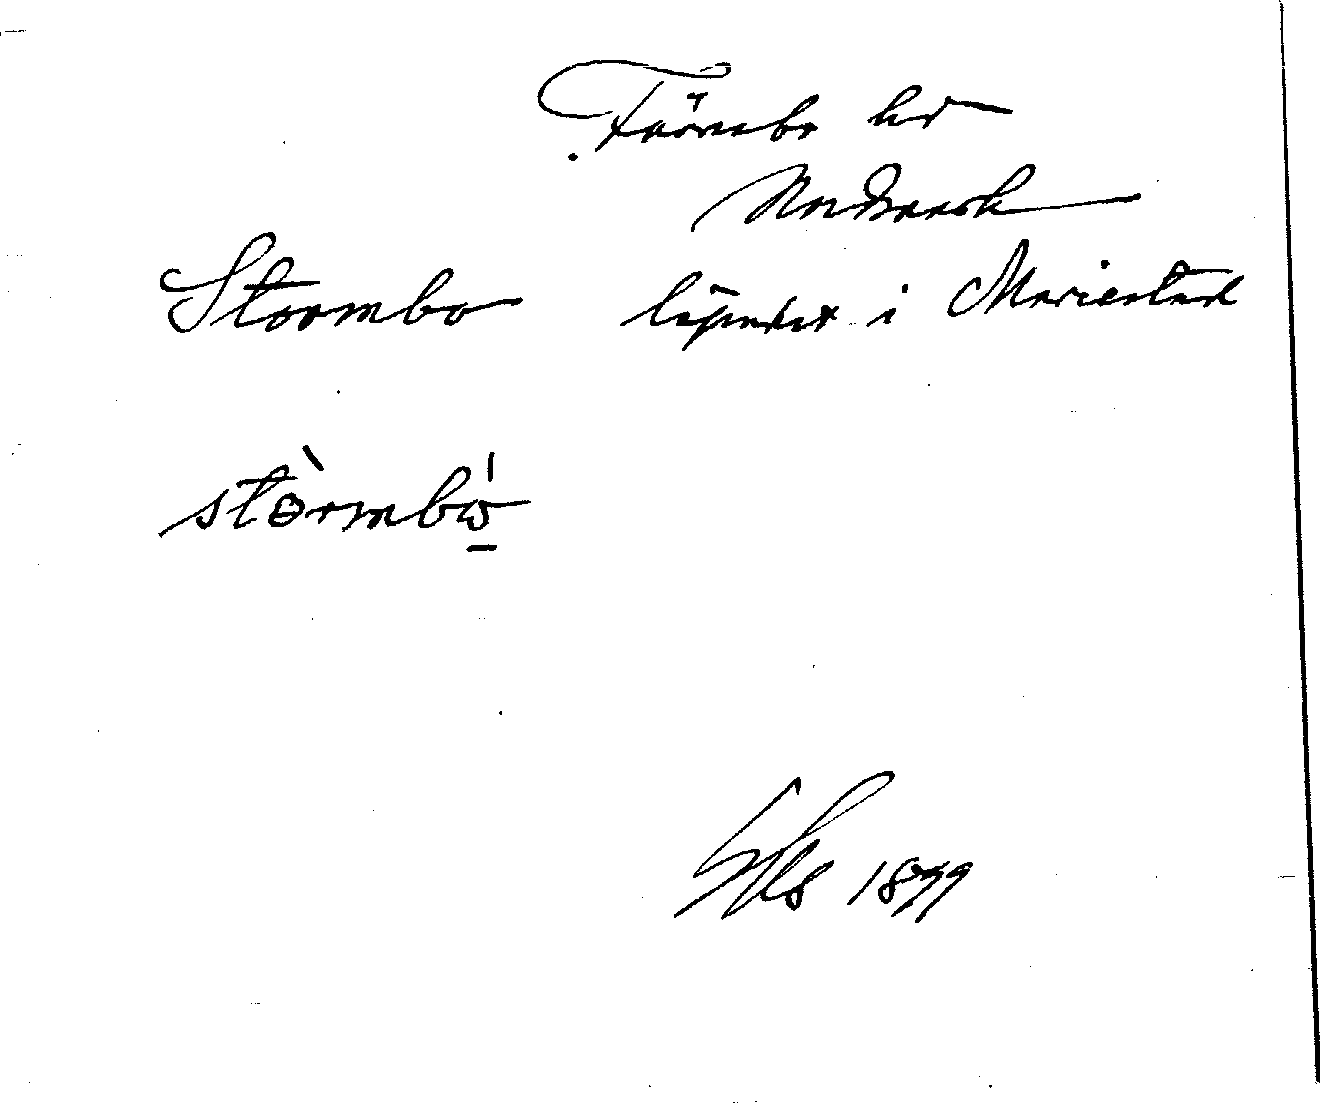 Färnebo hd
Nordmark
Stormbo lägenhet i Mariestad
störmbò
1899